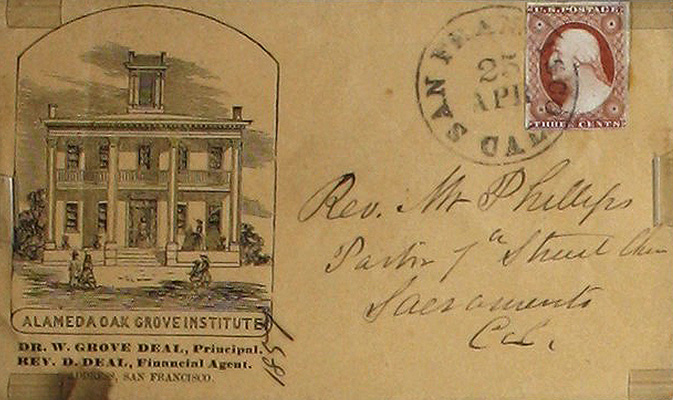 ALAMEDA OAK GROVE INSTITUTE
DR. W. GROVE DEAL, Principal.
REV. D. DEAL, Financial Agent.
ADDRESS, SAN FRANCISCO.
SAN FRANCISCO
25
APR
U.S. POSTAGE
THREE CENTS
Rev. Mr Phillips
Pastor 7th Street Chu
Sacramento
Cal.